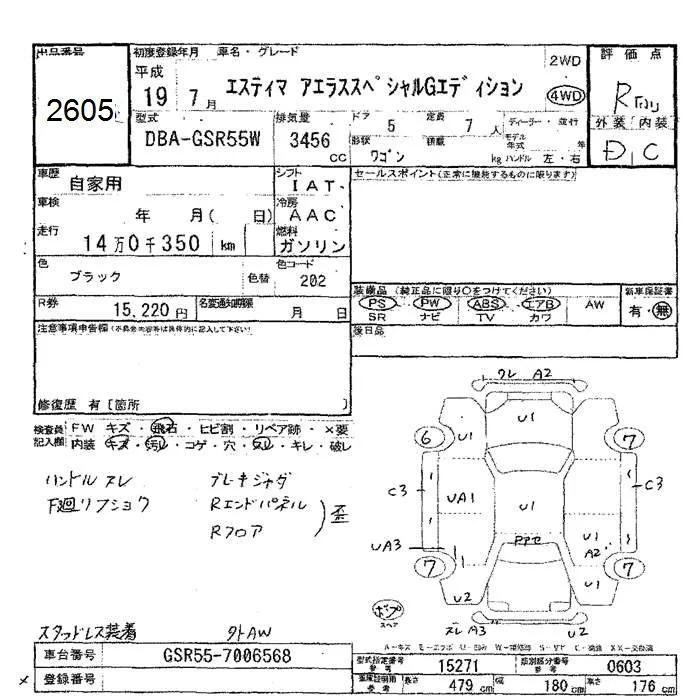 出品番号 初度登録年月 車名・グレード 評価点
2605
平成 19 7月 エスティマ アエラススペシャルGエディション 2WD 4WD
R
型式 排気量 ドア 5 定員 7人 ディーラー・並行 外装 内装
DBA-GSR55W 3456cc 形状 ワゴン 積載 kg モデル年式 年 ハンドル 左・右 D C
車歴 自家用 シフト IAT セールスポイント(正常に機能するものに限ります)
車検 年 月( 日) 冷房 AAC
走行 14万0千350km 燃料 ガソリン
色 ブラック 色替 色コード 202
装備品(純正品に限り○をつけてください) 新車保証書
R券 15,220円 名変通知期限 月 日 PS PW ABS エアB AW 有・無
SR ナビ TV カワ
注意事項申告欄(不具合内容等は具体的に記入して下さい) 後日品
修復歴 有[箇所 ]
検査員記入欄 FW キズ・飛石・ヒビ割・リペア跡・×要
内装 キズ・汚レ・コゲ・穴・スレ・キレ・破レ
ハンドル スレ ブレーキジャダ
F廻リフショク Rエンドパネル
Rフロア 歪
ワレ A2
U1
6 U1 7
C3 C3
UA1 U1
UA3 U1 A2
7 7
U2 U1
ズレA3 U2
スペア
スタッドレス装着 外AW
車台番号 GSR55-7006568 型式指定番号 15271 類別区分番号 0603
× 登録番号 長さ 479cm 幅 180cm 高さ 176cm